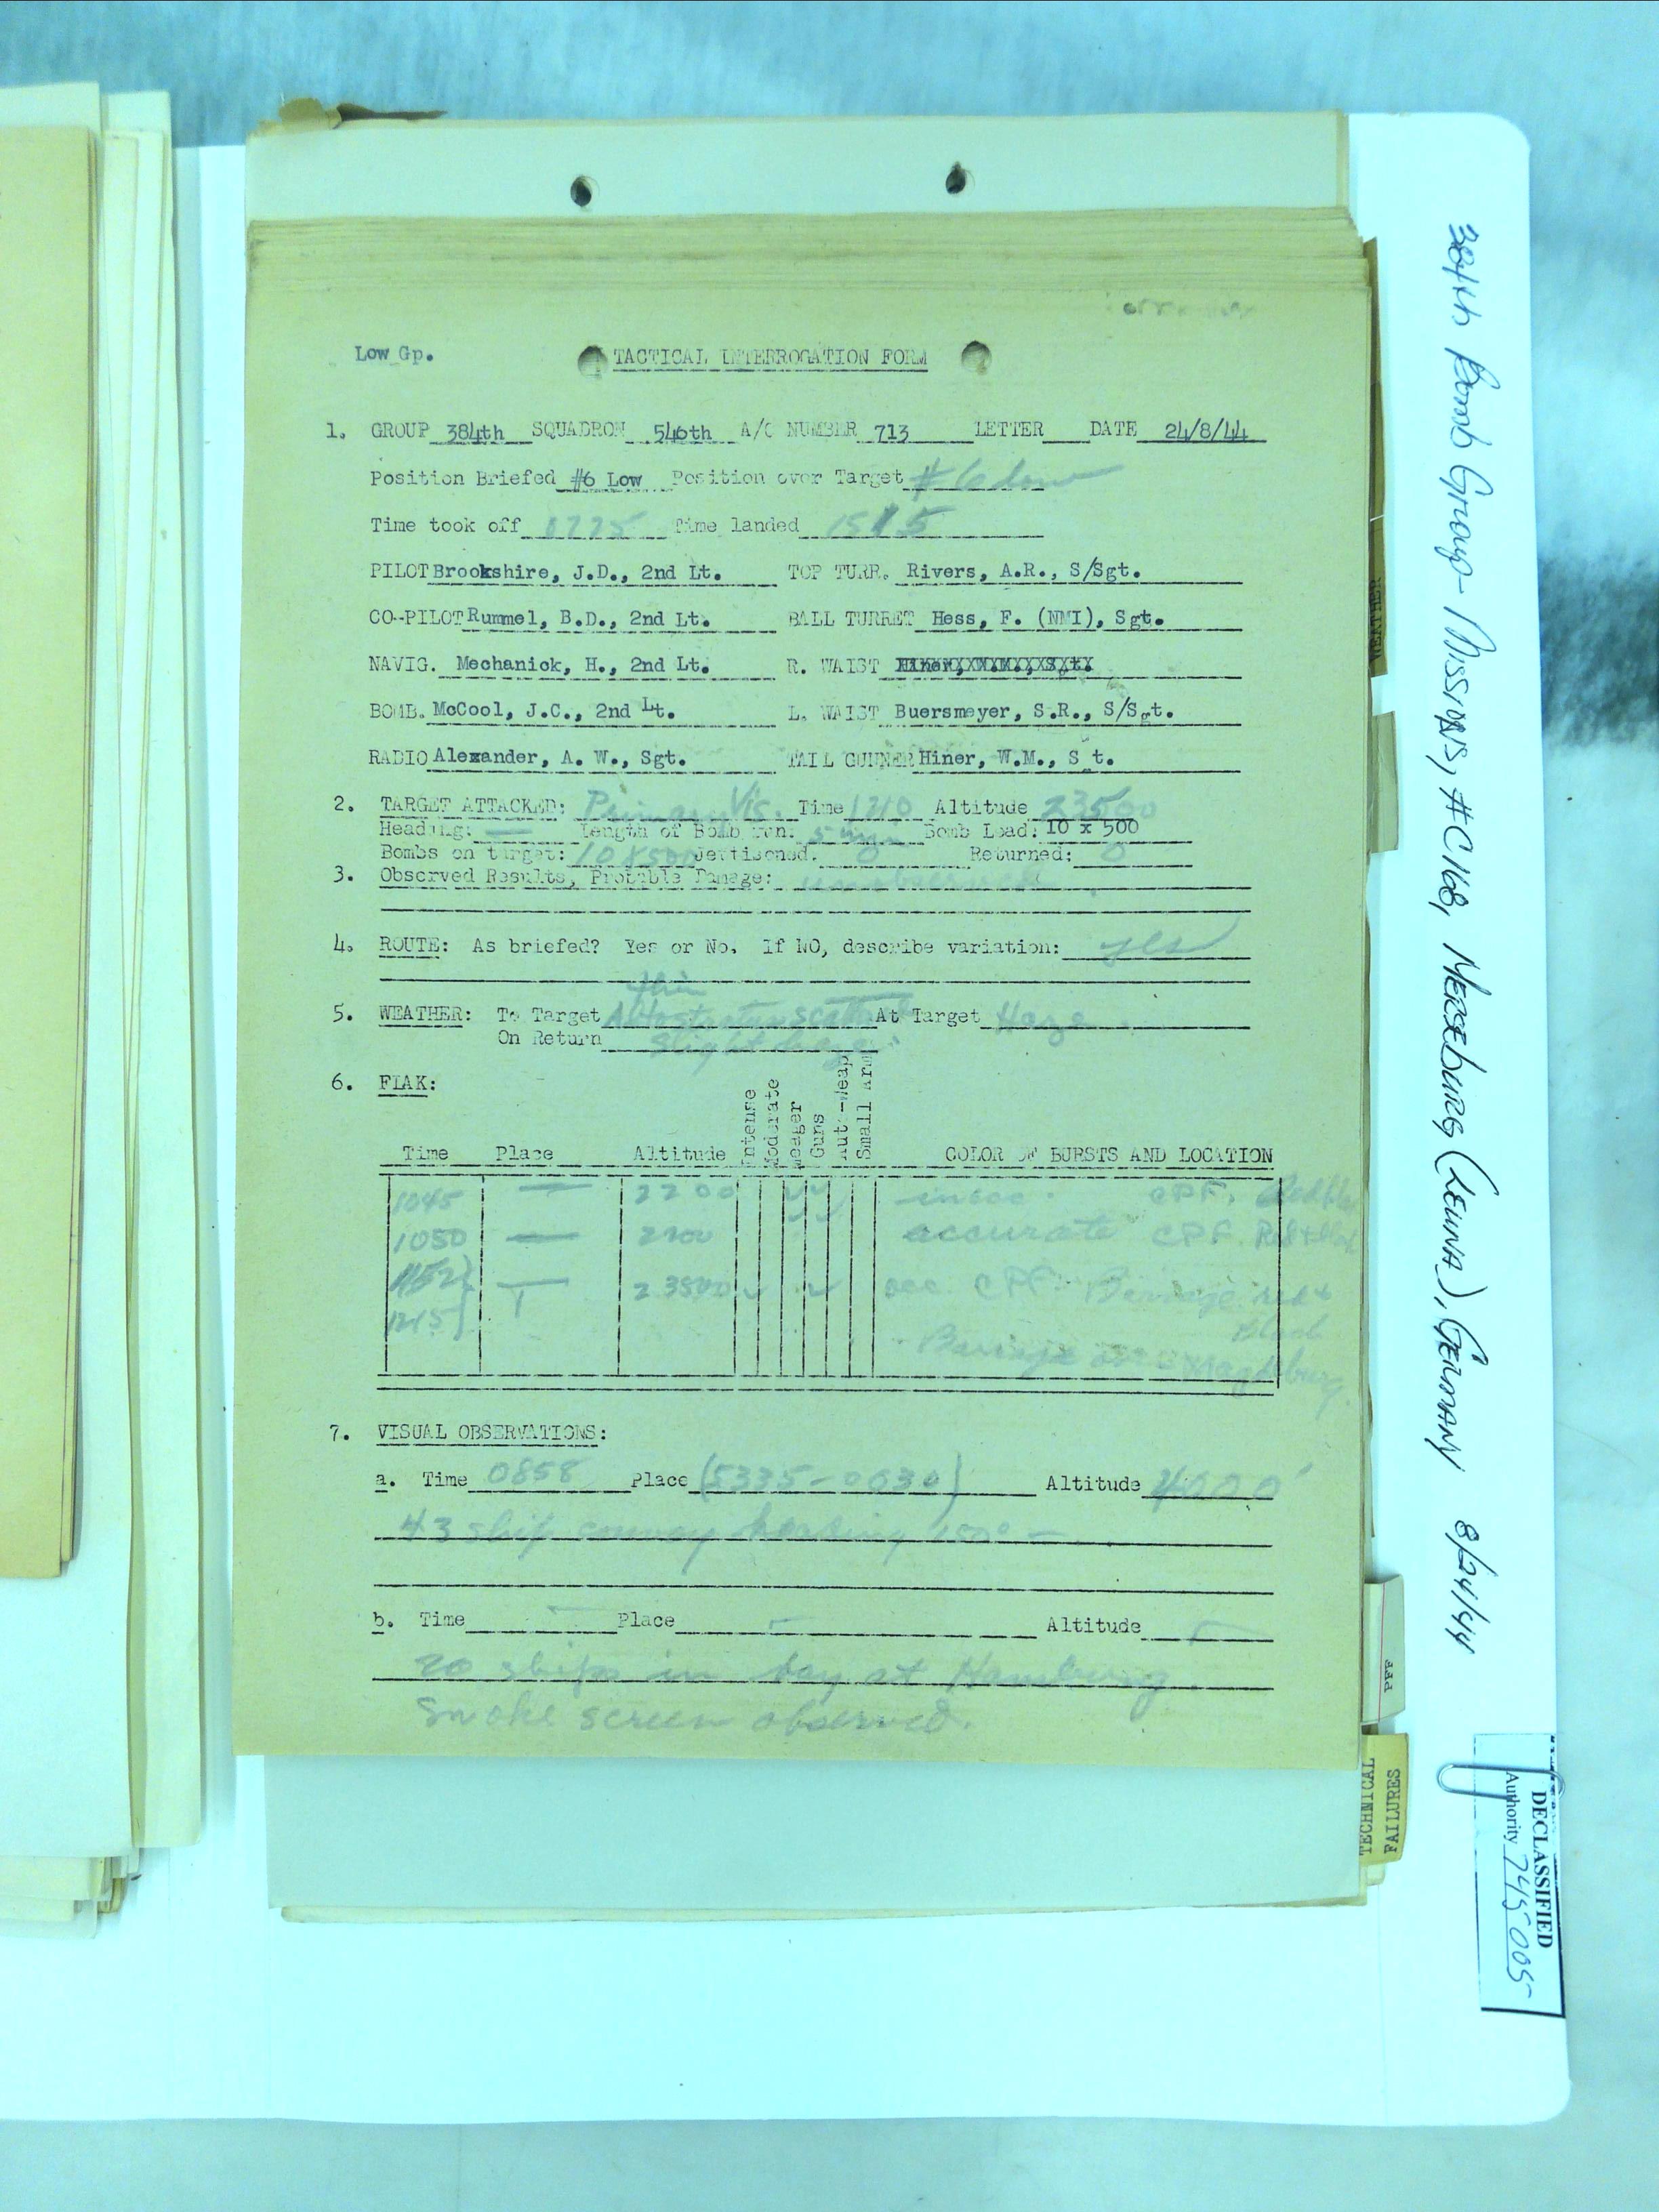 Low Gp.
TACTICAL INTERROGATION FORM
1. GROUP 384th SQUADRON 546th A/C NUMBER 713 LETTER DATE 24/8/44
Position Briefed #6 Low Position over Target #6 low
Time took off 0725 Time landed 1515
PILOT Brookshire, J.D., 2nd Lt. TOP TURR. Rivers, A.R., S/Sgt.
CO-PILOT Rummel, B.D., 2nd Lt. BALL TURRET Hess, F. (NMI), Sgt.
NAVIG. Mechanick, H., 2nd Lt. R. WAIST
BOMB. McCool, J.C., 2nd Lt. L. WAIST Buersmeyer, S.R., S/Sgt.
RADIO Alexander, A. W., Sgt. TAIL GUNNER Hiner, W.M., S t.
2. TARGET ATTACKED: Primary Vis. Time 1210 Altitude 23500
Heading: — Length of Bomb run: 5 min Bomb Load: 10 x 500
Bombs on target: 10 x 500 Jettisoned. 0 Returned: 0
3. Observed Results, Probable Damage: unobserved
4. ROUTE: As briefed? Yes or No. If NO, describe variation: yes
thin
5. WEATHER: To Target Altostratus scattered At Target Haze
On Return Slight haze
6. FLAK:
Intense
Moderate
Meager
Guns
Aut.-Weap
Small Arm
Time Place Altitude COLOR OF BURSTS AND LOCATION
1045 — 2200 inacc. CPF.
1050 — 2200 accurate CPF. Red + Black
1152 — 23500 acc CPF. Barrage red +
1215 Black
Barrage over Magdeburg.
7. VISUAL OBSERVATIONS:
a. Time 0858 Place (5335-0030) Altitude 4000'
43 ship convoy heading 150° —
b. Time — Place — Altitude —
20 ships in bay at Hamburg.
Smoke screen observed.
384th Bomb Group - Missions, #C168, Merseburg (Leuna), Germany 8/24/44
WEATHER
PFF
TECHNICAL
FAILURES
DECLASSIFIED
Authority 745005